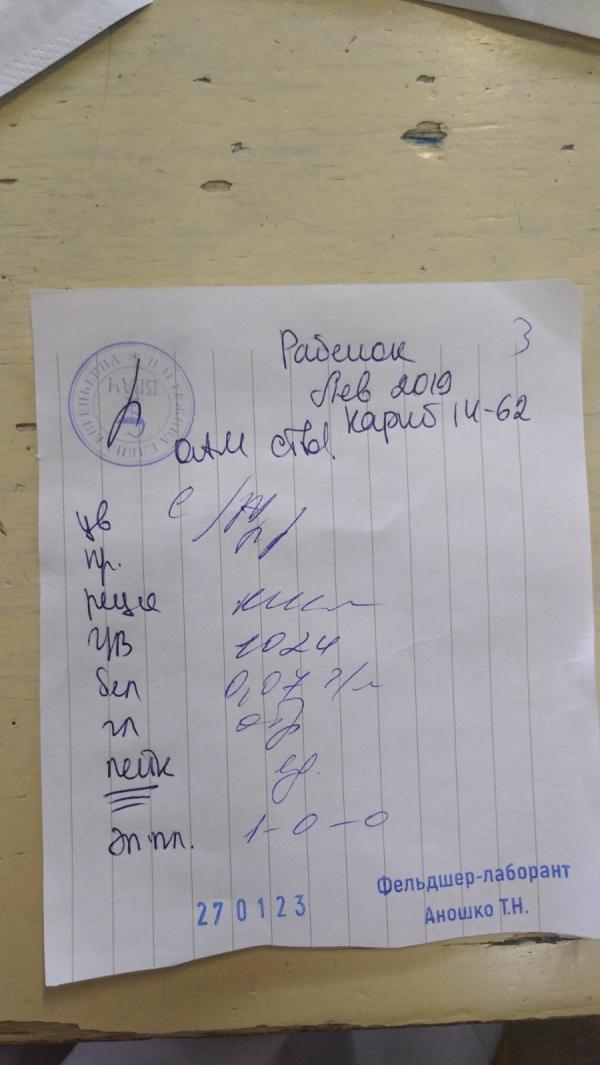 3
Рабенок
Лев 2019
Кариб 14-62
ОАМ cito!
ВРАЧ
цв с/ж
пр. п/
реция кисл
УВ 1024
бел 0,07 г/л
гл отр
лейк ед.
эп пл. 1-0-0
Фельдшер-лаборант
Аношко Т.Н.
270123